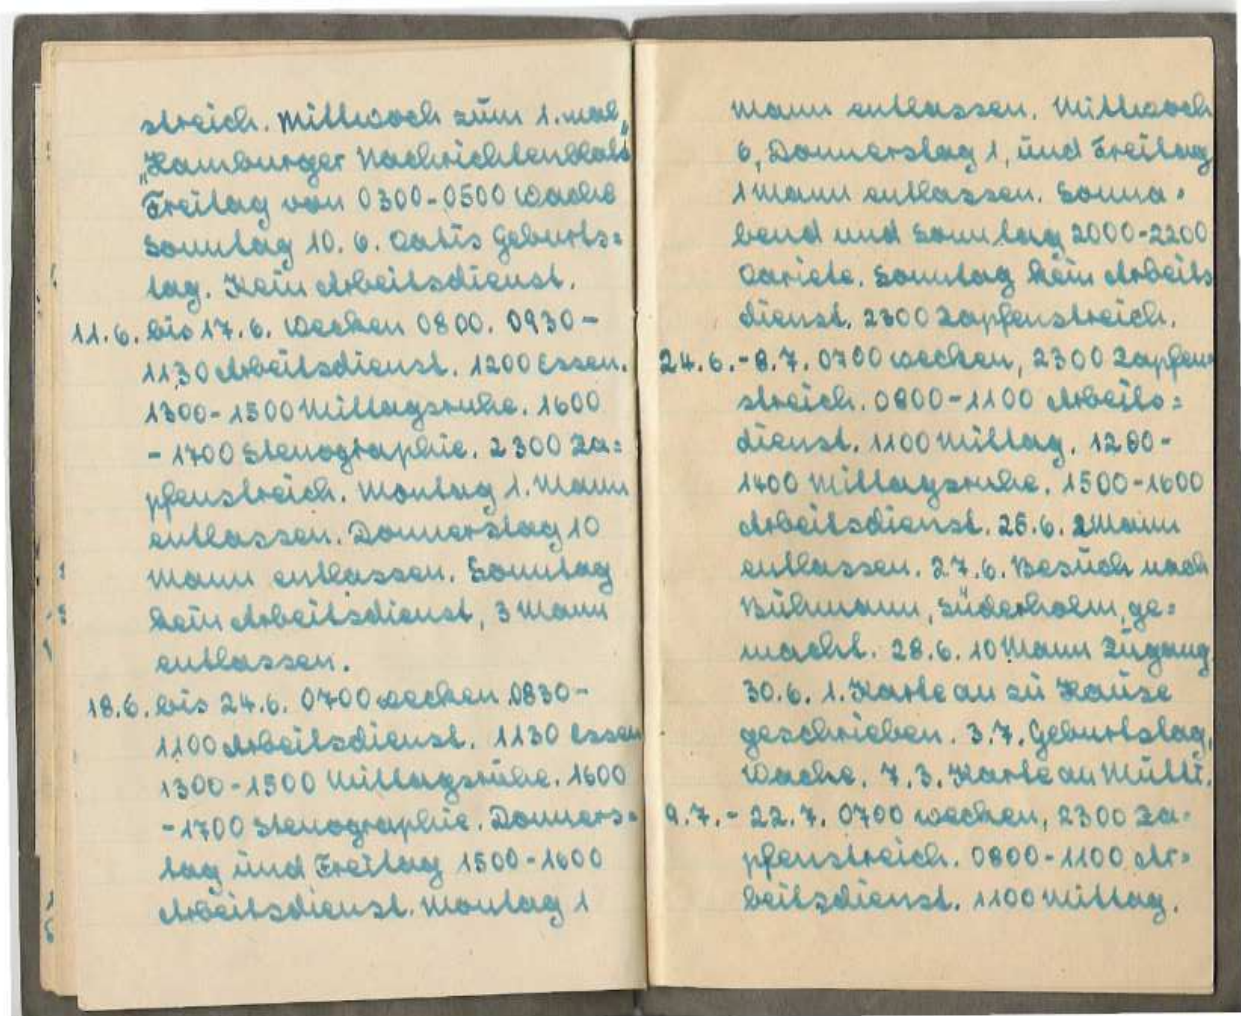 streich. Mittwoch zum 1. mal
„Hamburger Nachrichtenblatt"
Freitag von 0300-0500 Wache
Sonntag 10. 6. Vatis Geburts=
tag. Kein Arbeitsdienst.
11.6. bis 17.6. Wecken 0800. 0930-
1130 Arbeitsdienst. 1200 Essen.
1300-1500 Mittagsruhe. 1600
-1700 Stenographie. 2300 Za=
pfenstreich. Montag 1. Mann
entlassen. Donnerstag 10
Mann entlassen. Sonntag
kein Arbeitsdienst, 3 Mann
entlassen.
18.6. bis 24.6. 0700 wecken 0830-
1100 Arbeitsdienst. 1130 Essen
1300-1500 Mittagsruhe. 1600
-1700 Stenographie. Donners=
tag und Freitag 1500-1600
Arbeitsdienst. Montag 1
Mann entlassen. Mittwoch
6, Donnerstag 1, und Freitag
1 Mann entlassen. Sonna=
bend und Sonntag 2000-2200
Variete. Sonntag kein Arbeits
dienst. 2300 Zapfenstreich.
24.6.-8.7. 0700 wecken, 2300 Zapfen
streich. 0800-1100 Arbeits=
dienst. 1100 Mittag. 1200-
1400 Mittagsruhe. 1500-1600
Arbeitsdienst. 26.6. 2 Mann
entlassen. 27.6. Besuch nach
Bühmann, Süderholm, ge=
macht. 28.6. 10 Mann Zugang
30.6. 1. Karte an zu Hause
geschrieben. 3.7. Geburtstag,
Wache. 7.3. Karte an Mutti.
9.7.-22.7. 0700 wecken, 2300 Za=
pfenstreich. 0800-1100 Ar=
beitsdienst. 1100 Mittag.